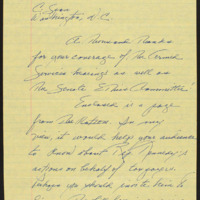 C. Span
Washington, D.C.
A thousand thanks
for your coverage of the Armed
Services hearings as well as
the Senate Ethics Committee.
Enclosed is a page
from The Nation. In my
view, it would help your audience
to know about
actions on behalf of taxpayers
perhaps you should